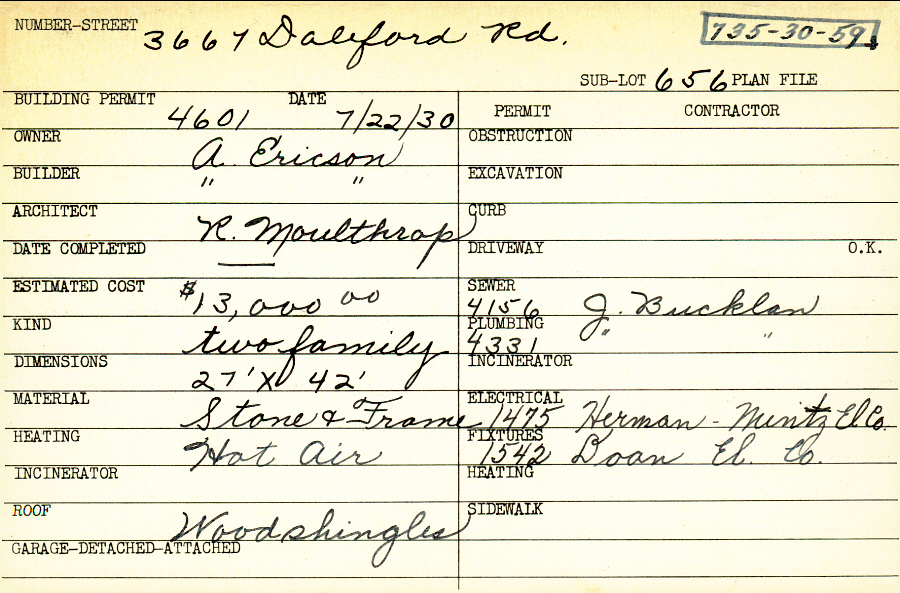 NUMBER-STREET 3667 Daleford Rd. 735-30-59
SUB-LOT 656 PLAN FILE
BUILDING PERMIT 4601 DATE 7/22/30 PERMIT CONTRACTOR
OWNER A. Ericson OBSTRUCTION
BUILDER " " EXCAVATION
ARCHITECT R. Moulthrop CURB
DATE COMPLETED — DRIVEWAY O.K.
ESTIMATED COST $13,000 00 SEWER 4156 J. Bucklan
KIND two family PLUMBING 4331 " "
DIMENSIONS 27' X 42' INCINERATOR
MATERIAL Stone & Frame ELECTRICAL 1475 Herman - Mintz El. Co.
HEATING Hot Air FIXTURES 1542 Doan El. Co.
INCINERATOR HEATING
ROOF Woodshingles SIDEWALK
GARAGE-DETACHED-ATTACHED